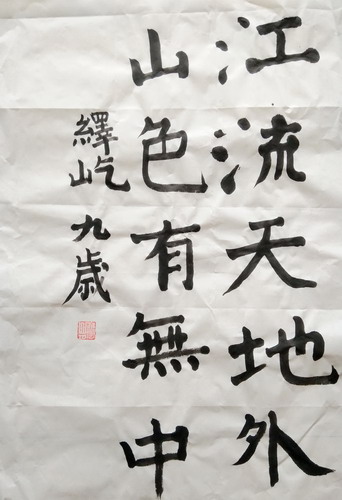 江流天地外
山色有無中
繹屹九歲